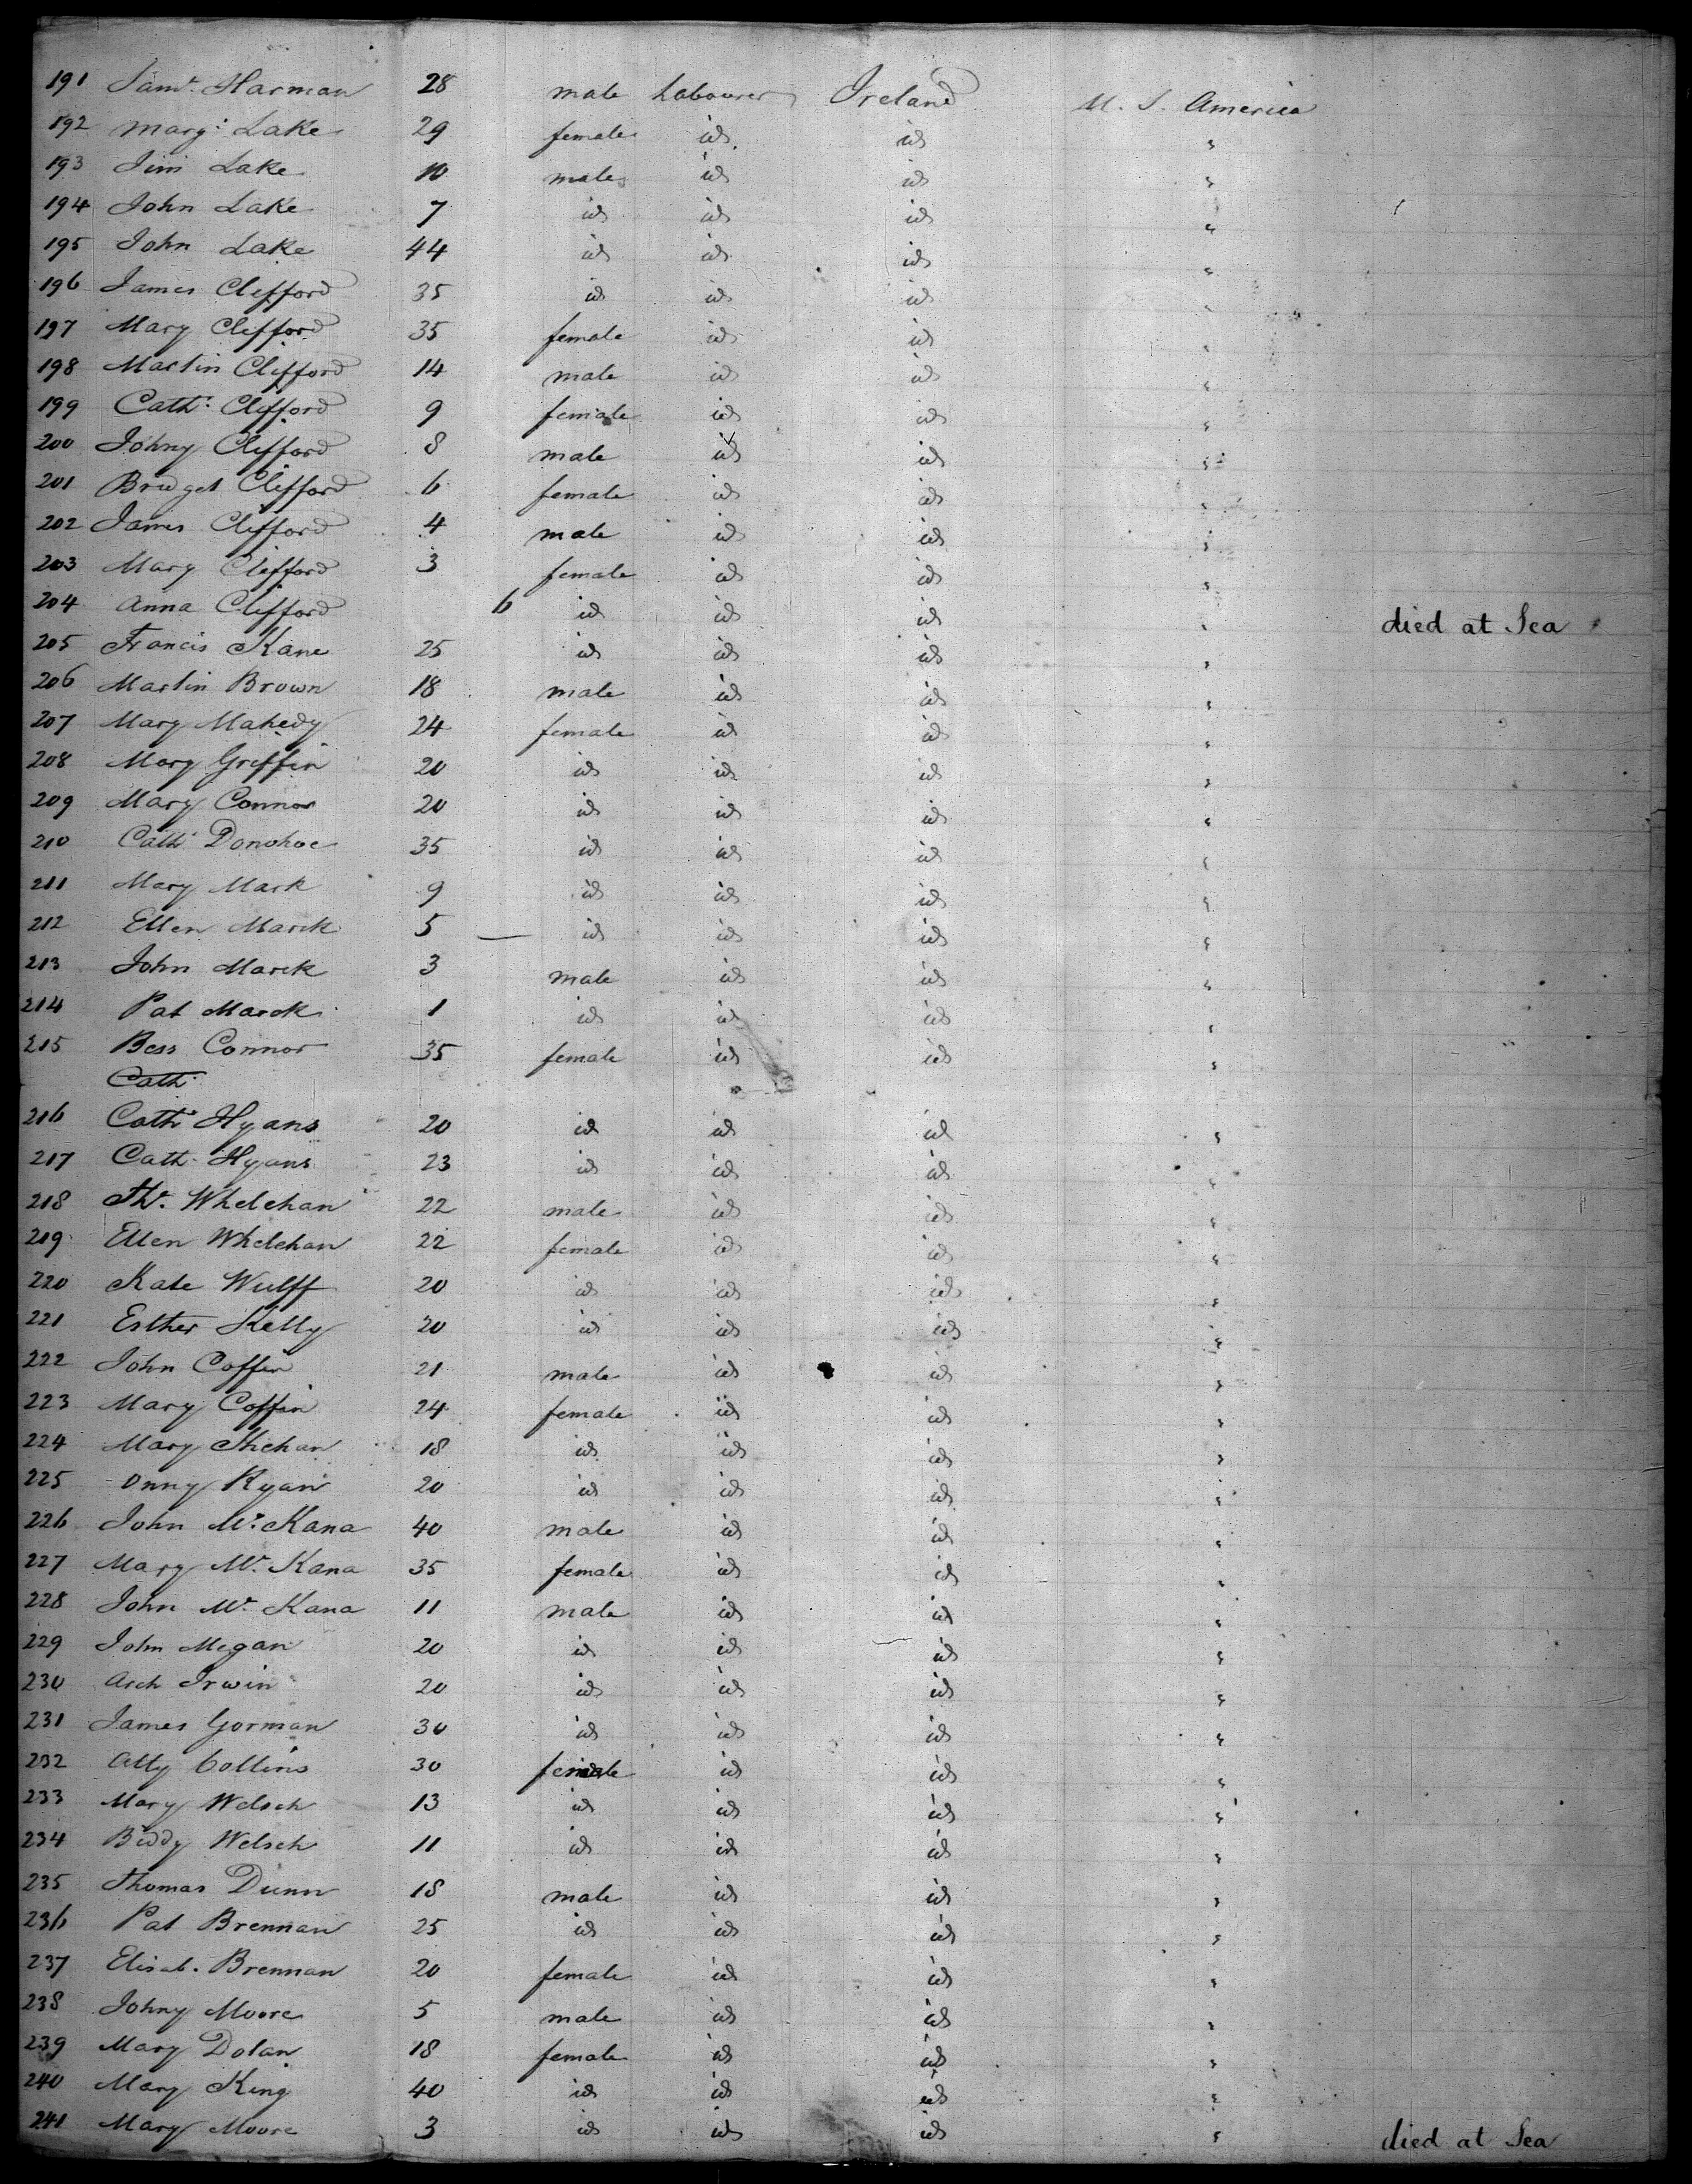 191 Saml. Harman 28 male Labourer Ireland U. S. America
192 Marg: Lake 29 female id id "
193 Jim Lake 10 male id id "
194 John Lake 7 id id id "
195 John Lake 44 id id id "
196 James Clifford 35 id id id "
197 Mary Clifford 35 female id id "
198 Martin Clifford 14 male id id "
199 Cath: Clifford 9 female id id "
200 Johny Clifford 8 male id id "
201 Bridget Clifford 6 female id id "
202 James Clifford 4 male id id "
203 Mary Clifford 3 female id id "
204 Anna Clifford 6 id id id " died at Sea
205 Francis Kane 25 id id id "
206 Martin Brown 18 male id id "
207 Mary Mahedy 24 female id id "
208 Mary Griffin 20 id id id "
209 Mary Connor 20 id id id "
210 Cath Donohoe 35 id id id "
211 Mary Mark 9 id id id "
212 Ellen Marck 5 id id id "
213 John Marck 3 male id id "
214 Pat Marck 1 id id id "
215 Bess Connor 35 female id id "
Cath:
216 Cath Hyans 20 id id id "
217 Cath. Hyans 23 id id id "
218 Th. Whelehan 22 male id id "
219 Ellen Whelehan 22 female id id "
220 Kate Wulff 20 id id id "
221 Esther Kelly 20 id id id "
222 John Coffin 21 male id id "
223 Mary Coffin 24 female id id "
224 Mary Shehan 18 id id id "
225 Onny Ryan 20 id id id "
226 John Mc. Kana 40 male id id "
227 Mary Mc. Kana 35 female id id "
228 John Mc. Kana 11 male id id "
229 John Megan 20 id id id "
230 Arch Irwin 20 id id id "
231 James Gorman 30 id id id "
232 Ally Collins 30 female id id "
233 Mary Welsch 13 id id id "
234 Biddy Welsch 11 id id id "
235 Thomas Dunn 18 male id id "
236 Pat Brennan 25 id id id "
237 Elisab. Brennan 20 female id id "
238 Johny Moore 5 male id id "
239 Mary Dolan 18 female id id "
240 Mary King 40 id id id "
241 Mary Moore 3 id id id " died at Sea